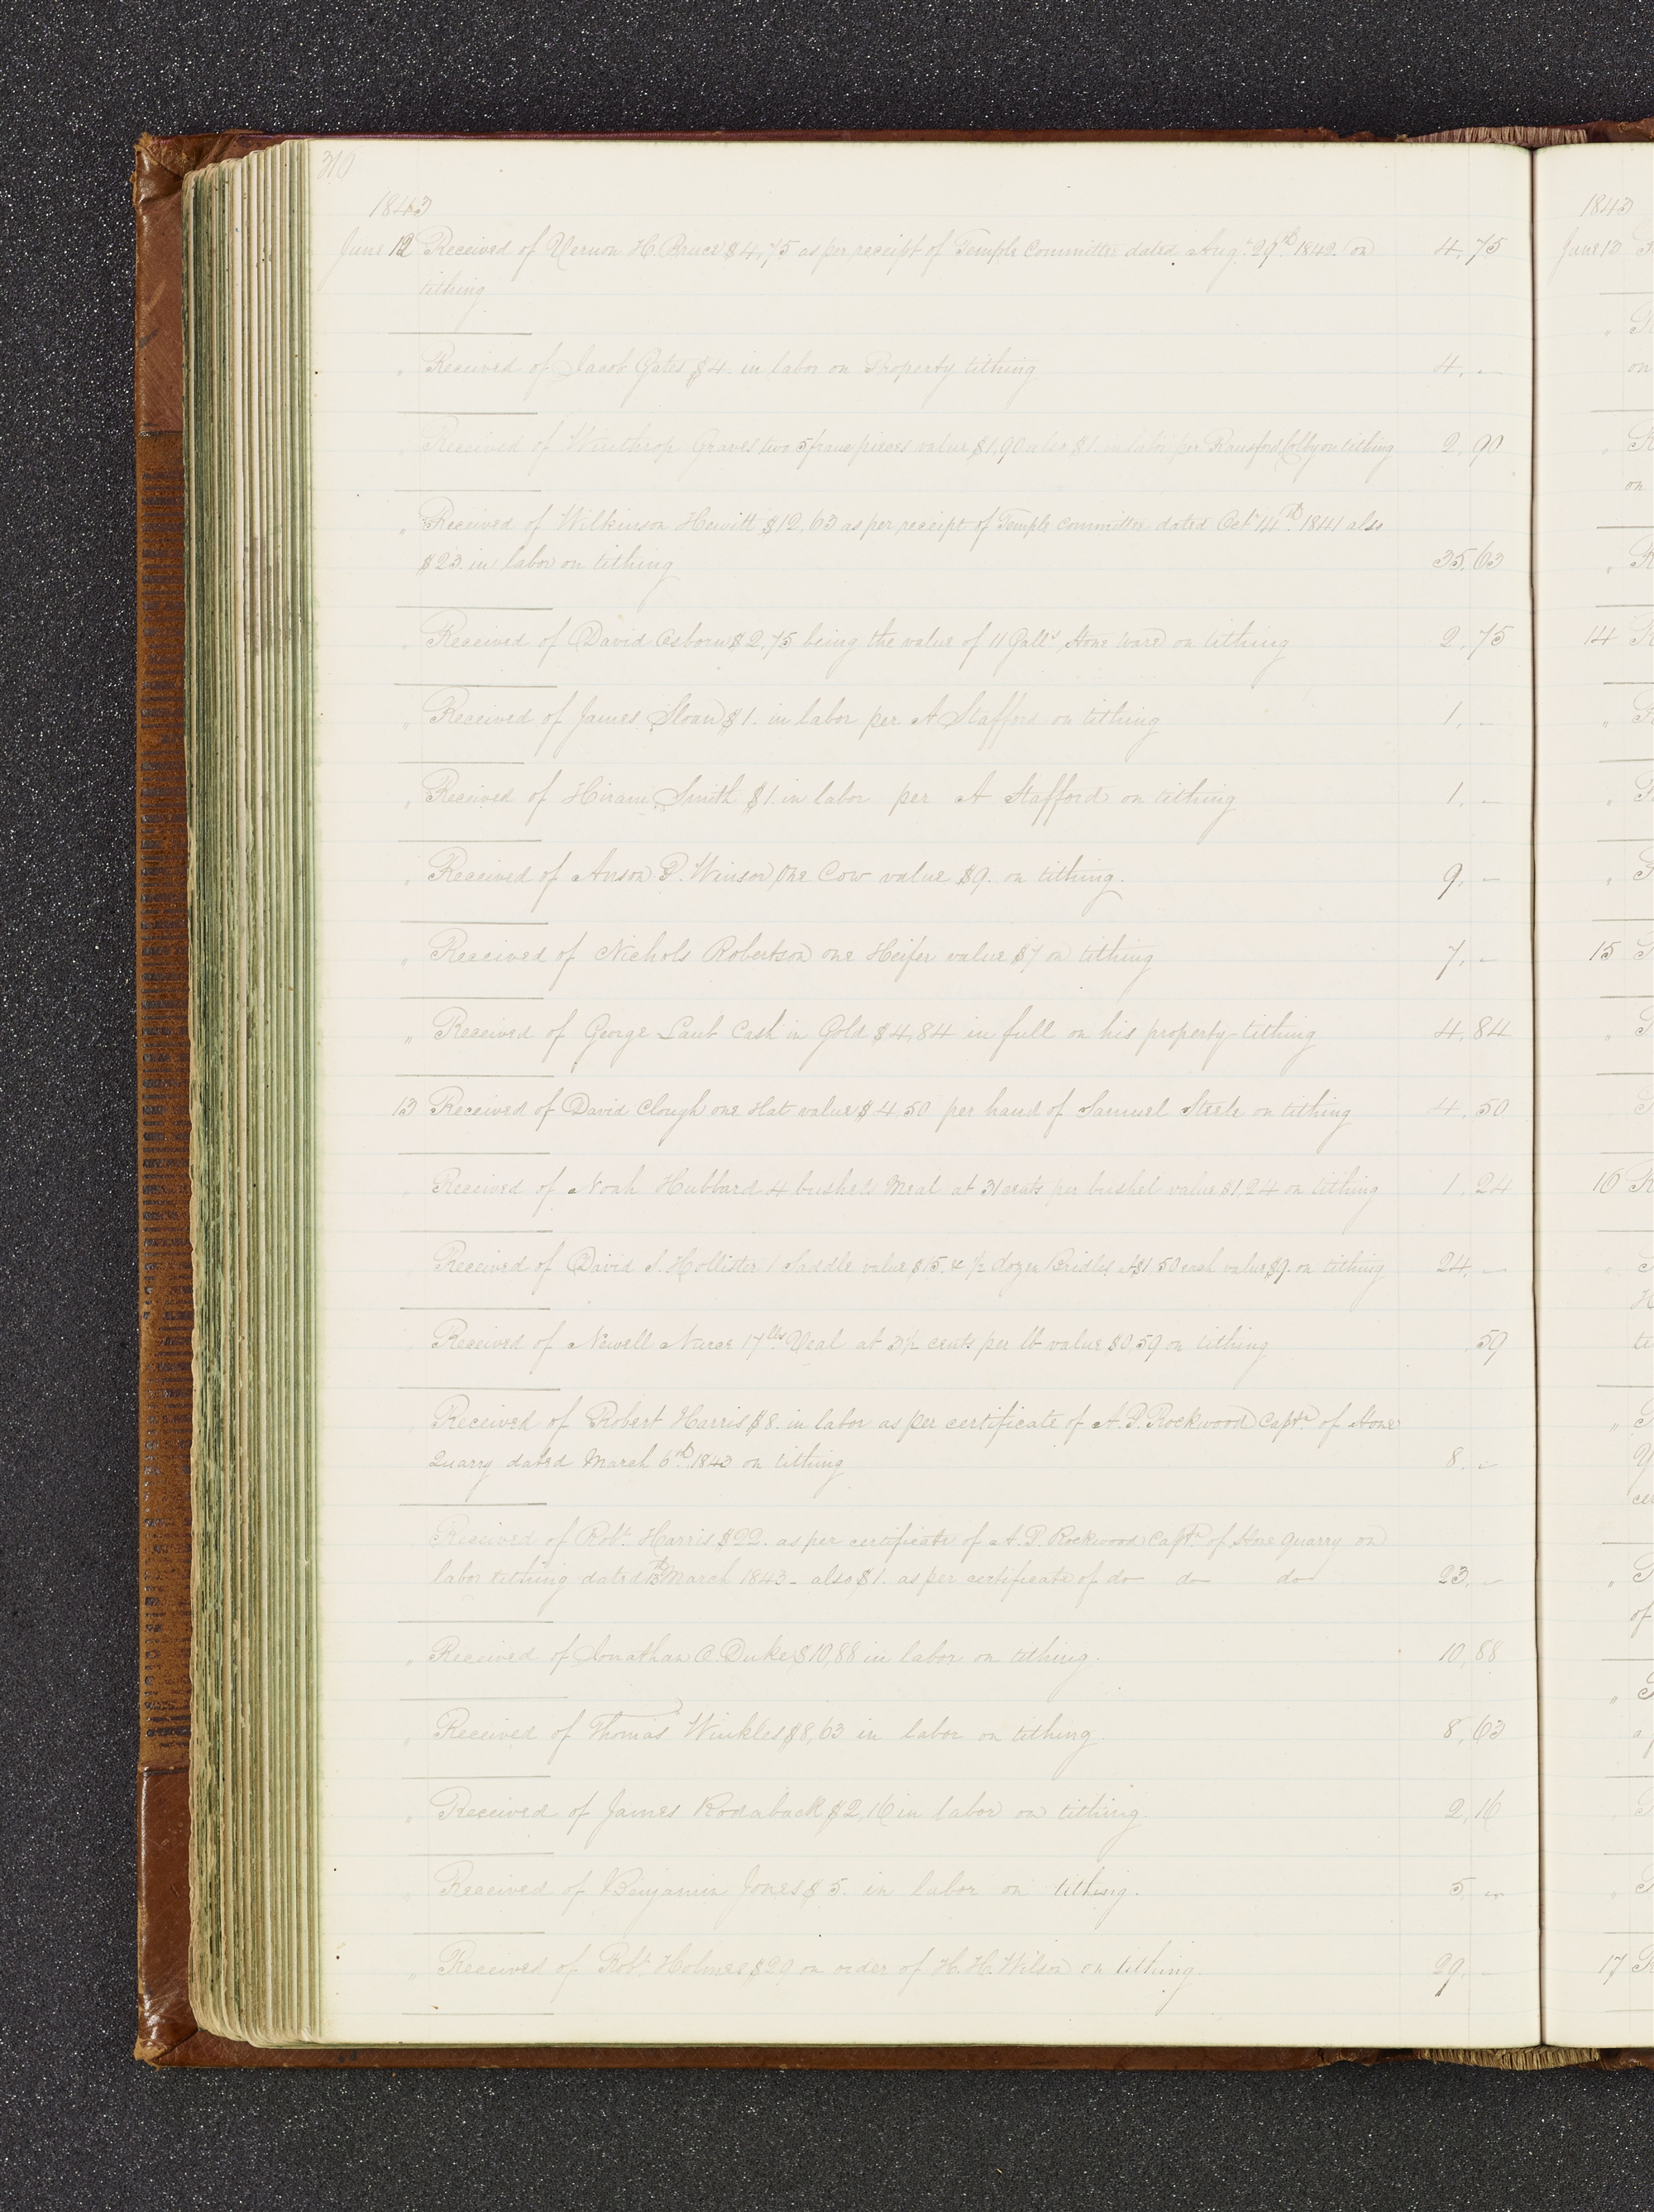 310
1843
June 12 Received of Vernon H. Bruce $4,75 as per receipt of Temple Committee dated Aug.t 29th 1842. on 4,75
tithing
" Received of Jacob Gates $4. in labor on Property tithing 4. -
" Received of Winthrop Graves two 5 franc pieces value $1,90 also $1. in labor per Ransford Colby on tithing 2,90
" Received of Wilkinson Hewitt $12,63 as per receipt of Temple committee dated Oct. 14th 1841 also
$23. in labor on tithing 35,63
" Received of David Osborn $2,75 being the value of 11 Galls. Stone ware on tithing 2,75
" Received of James Sloan $1. in labor per A Stafford on tithing 1. -
" Received of Hiram Smith $1. in labor per A Stafford on tithing 1. -
" Received of Anson P. Winsor One Cow value $9. on tithing. 9. -
" Received of Nichols Robertson one Heifer value $7 on tithing 7. -
" Received of George Laub Cash in Gold $4,84 in full on his property tithing 4,84
13 Received of David Clough one Hat value $4,50 per hand of Samuel Steele on tithing 4,50
" Received of Noah Hubbard 4 bushels Meal at 31 cents per bushel value $1,24 on tithing 1,24
" Received of David S. Hollister 1 Saddle value $15. & 1/2 dozen Bridles at $1,50 each value $9. on tithing 24. -
" Received of Newell Nurse 17 lbs. Veal at 3 1/2 cents per lb value $0,59 on tithing ,59
" Received of Robert Harris $8. in labor as per certificate of A. P. Rockwood Capt. of Stone
Quarry dated March 6th 1843 on tithing 8. -
Received of Robt. Harris $22. as per certificate of A. P. Rockwood Capt. of Stone Quarry on
labor tithing dated 13th March 1843 - also $1. as per certificate of do do do 23. -
" Received of Jonathan O. Duke $10,88 in labor on tithing. 10,88
" Received of Thomas Winkles $8,63 in labor on tithing. 8,63
" Received of James Rodaback $2,16 in labor on tithing. 2,16
" Received of Benjamin Jones $5. in labor on tithing. 5. -
" Received of Robt. Holmes $29 on order of H. H. Wilson on tithing. 29. -
1843
June 13
"
on
"
on
"
14
"
"
"
15
"
16
"
te
"
"
of
"
a
17